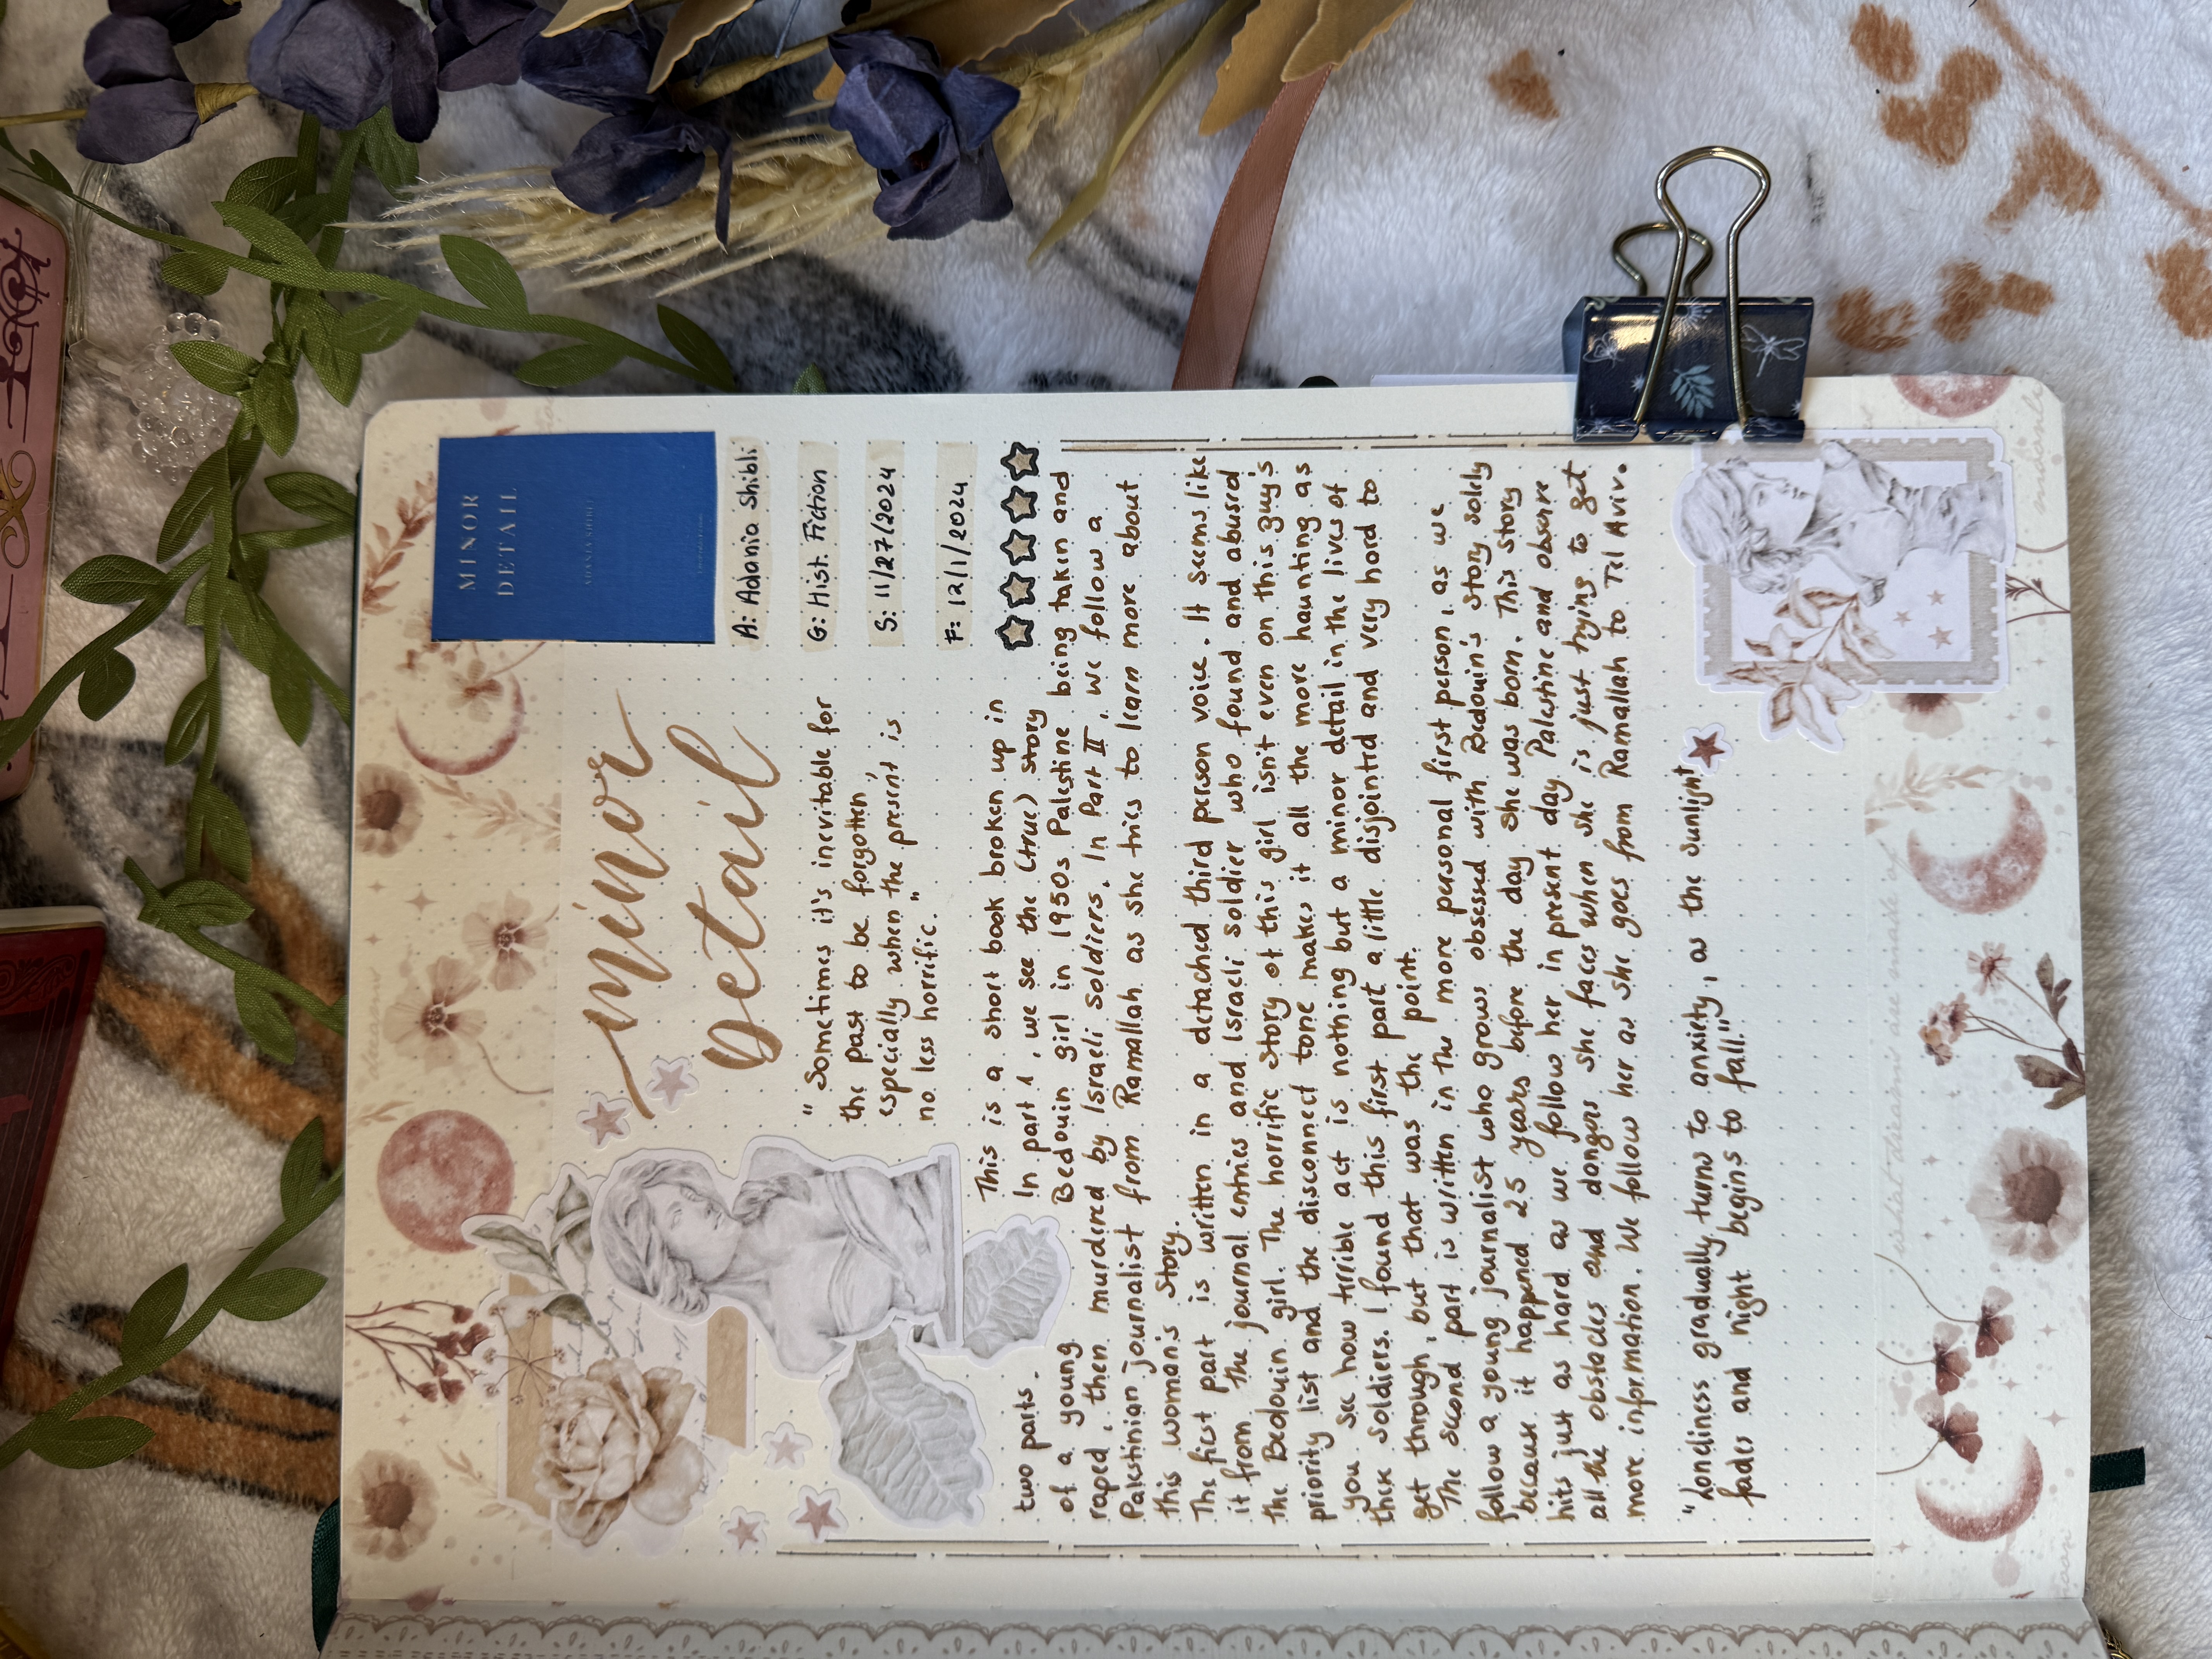 minor
Detail
MINOR
DETAIL
ADANIA SHIBLI
A: Adania Shibli
G: Hist. Fiction
S: 11/27/2024
F: 12/1/2024
" Sometimes it's inevitable for
the past to be forgotten,
especially when the present is
no less horrific. "
This is a short book broken up in
two parts. In part 1, we see the (true) story
of a young Bedouin girl in 1950s Palestine being taken and
raped, then murdered by Israeli soldiers. In Part II, we follow a
Palestinian journalist from Ramallah as she tries to learn more about
this woman's story.
The first part is written in a detached third person voice. It seems like
it from the journal entries and Israeli soldier who found and abused
the Bedouin girl. The horrific story of this girl isn't even on this guy's
priority list and the disconnect tone makes it all the more haunting as
you see how terrible act is nothing but a minor detail in the lives of
these soldiers. I found this first part a little disjointed and very hard to
get through, but that was the point.
The second part is written in the more personal first person, as we
follow a young journalist who grows obsessed with Bedouin's story solely
because it happened 25 years before the day she was born. This story
hits just as hard as we follow her in present day Palestine and observe
all the obstacles and dangers she faces when she is just trying to get
more information. We follow her as she goes from Ramallah to Tel Aviv.
"Loneliness gradually turns to anxiety, as the sunlight
fades and night begins to fall."
what dreams are made of